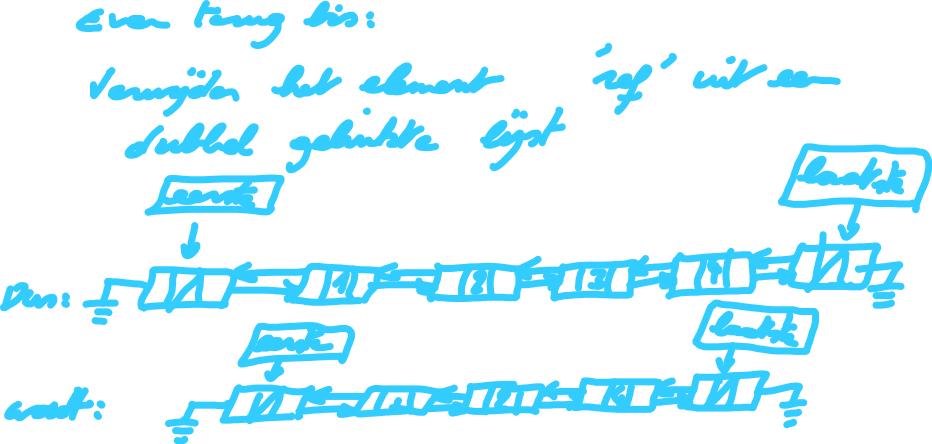 Even terug bis:
Verwijder het element 'ref' uit een
dubbel gelinkte lijst
eerste
laatste
Dus:
1 2 3 4
eerste
laatste
wordt:
1 2